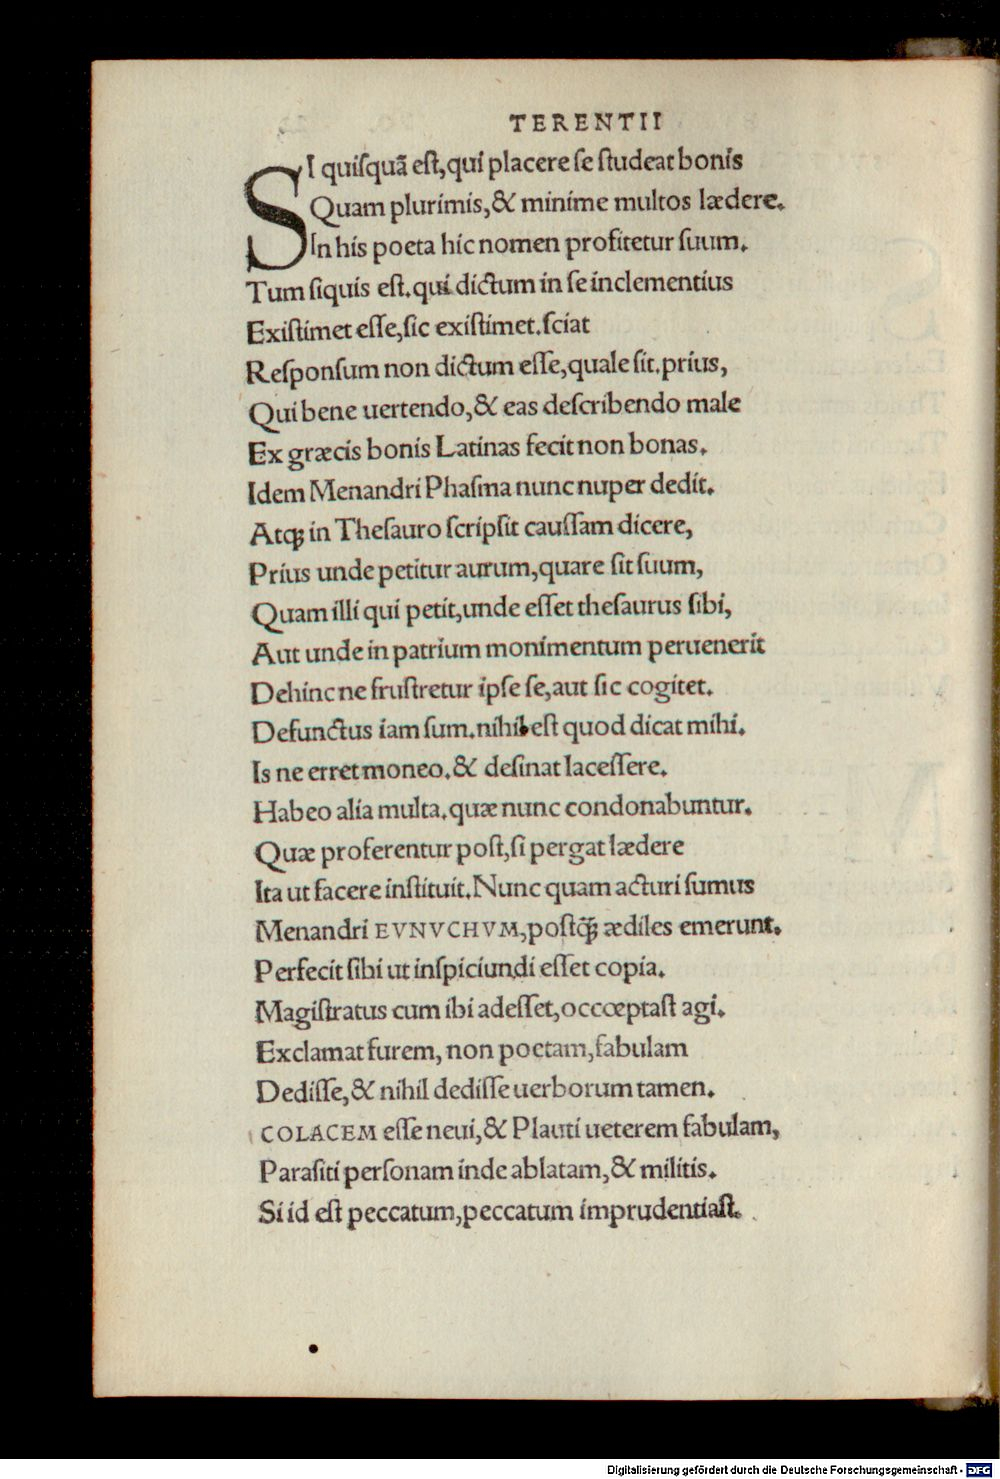 TERENTII
SI quiſquã eſt,qui placere ſe ſtudeat bonis
Quam plurimis,& minime multos lædere.
In his poeta hic nomen profitetur ſuum.
Tum ſiquis eſt.qui dictum in ſe inclementius
Exiſtimet eſſe,ſic exiſtimet.ſciat
Reſponſum non dictum eſſe,quale ſit.prius,
Qui bene uertendo,& eas deſcribendo male
Ex græcis bonis Latinas fecit non bonas.
Idem Menandri Phaſma nunc nuper dedit.
Atq; in Theſauro ſcripſit cauſſam dicere,
Prius unde petitur aurum,quare ſit ſuum,
Quam illi qui petit,unde eſſet theſaurus ſibi,
Aut unde in patrium monimentum peruenerit
Dehinc ne fruſtretur ipſe ſe,aut ſic cogitet.
Defunctus iam ſum.nihil eſt quod dicat mihi.
Is ne erret moneo.& deſinat laceſſere.
Habeo alia multa.quæ nunc condonabuntur.
Quæ proferentur poſt,ſi pergat lædere
Ita ut facere inſtituit.Nunc quam acturi ſumus
Menandri EVNVCHVM,poſtq̃; ædiles emerunt.
Perfecit ſibi ut inſpiciundi eſſet copia.
Magiſtratus cum ibi adeſſet,occœptaſt agi.
Exclamat furem, non poetam,fabulam
Dediſſe,& nihil dediſſe uerborum tamen.
COLACEM eſſe neui,& Plauti ueterem fabulam,
Paraſiti perſonam inde ablatam,& militis.
Si id eſt peccatum,peccatum imprudentiaſt.
Digitalisierung gefördert durch die Deutsche Forschungsgemeinschaft - DFG